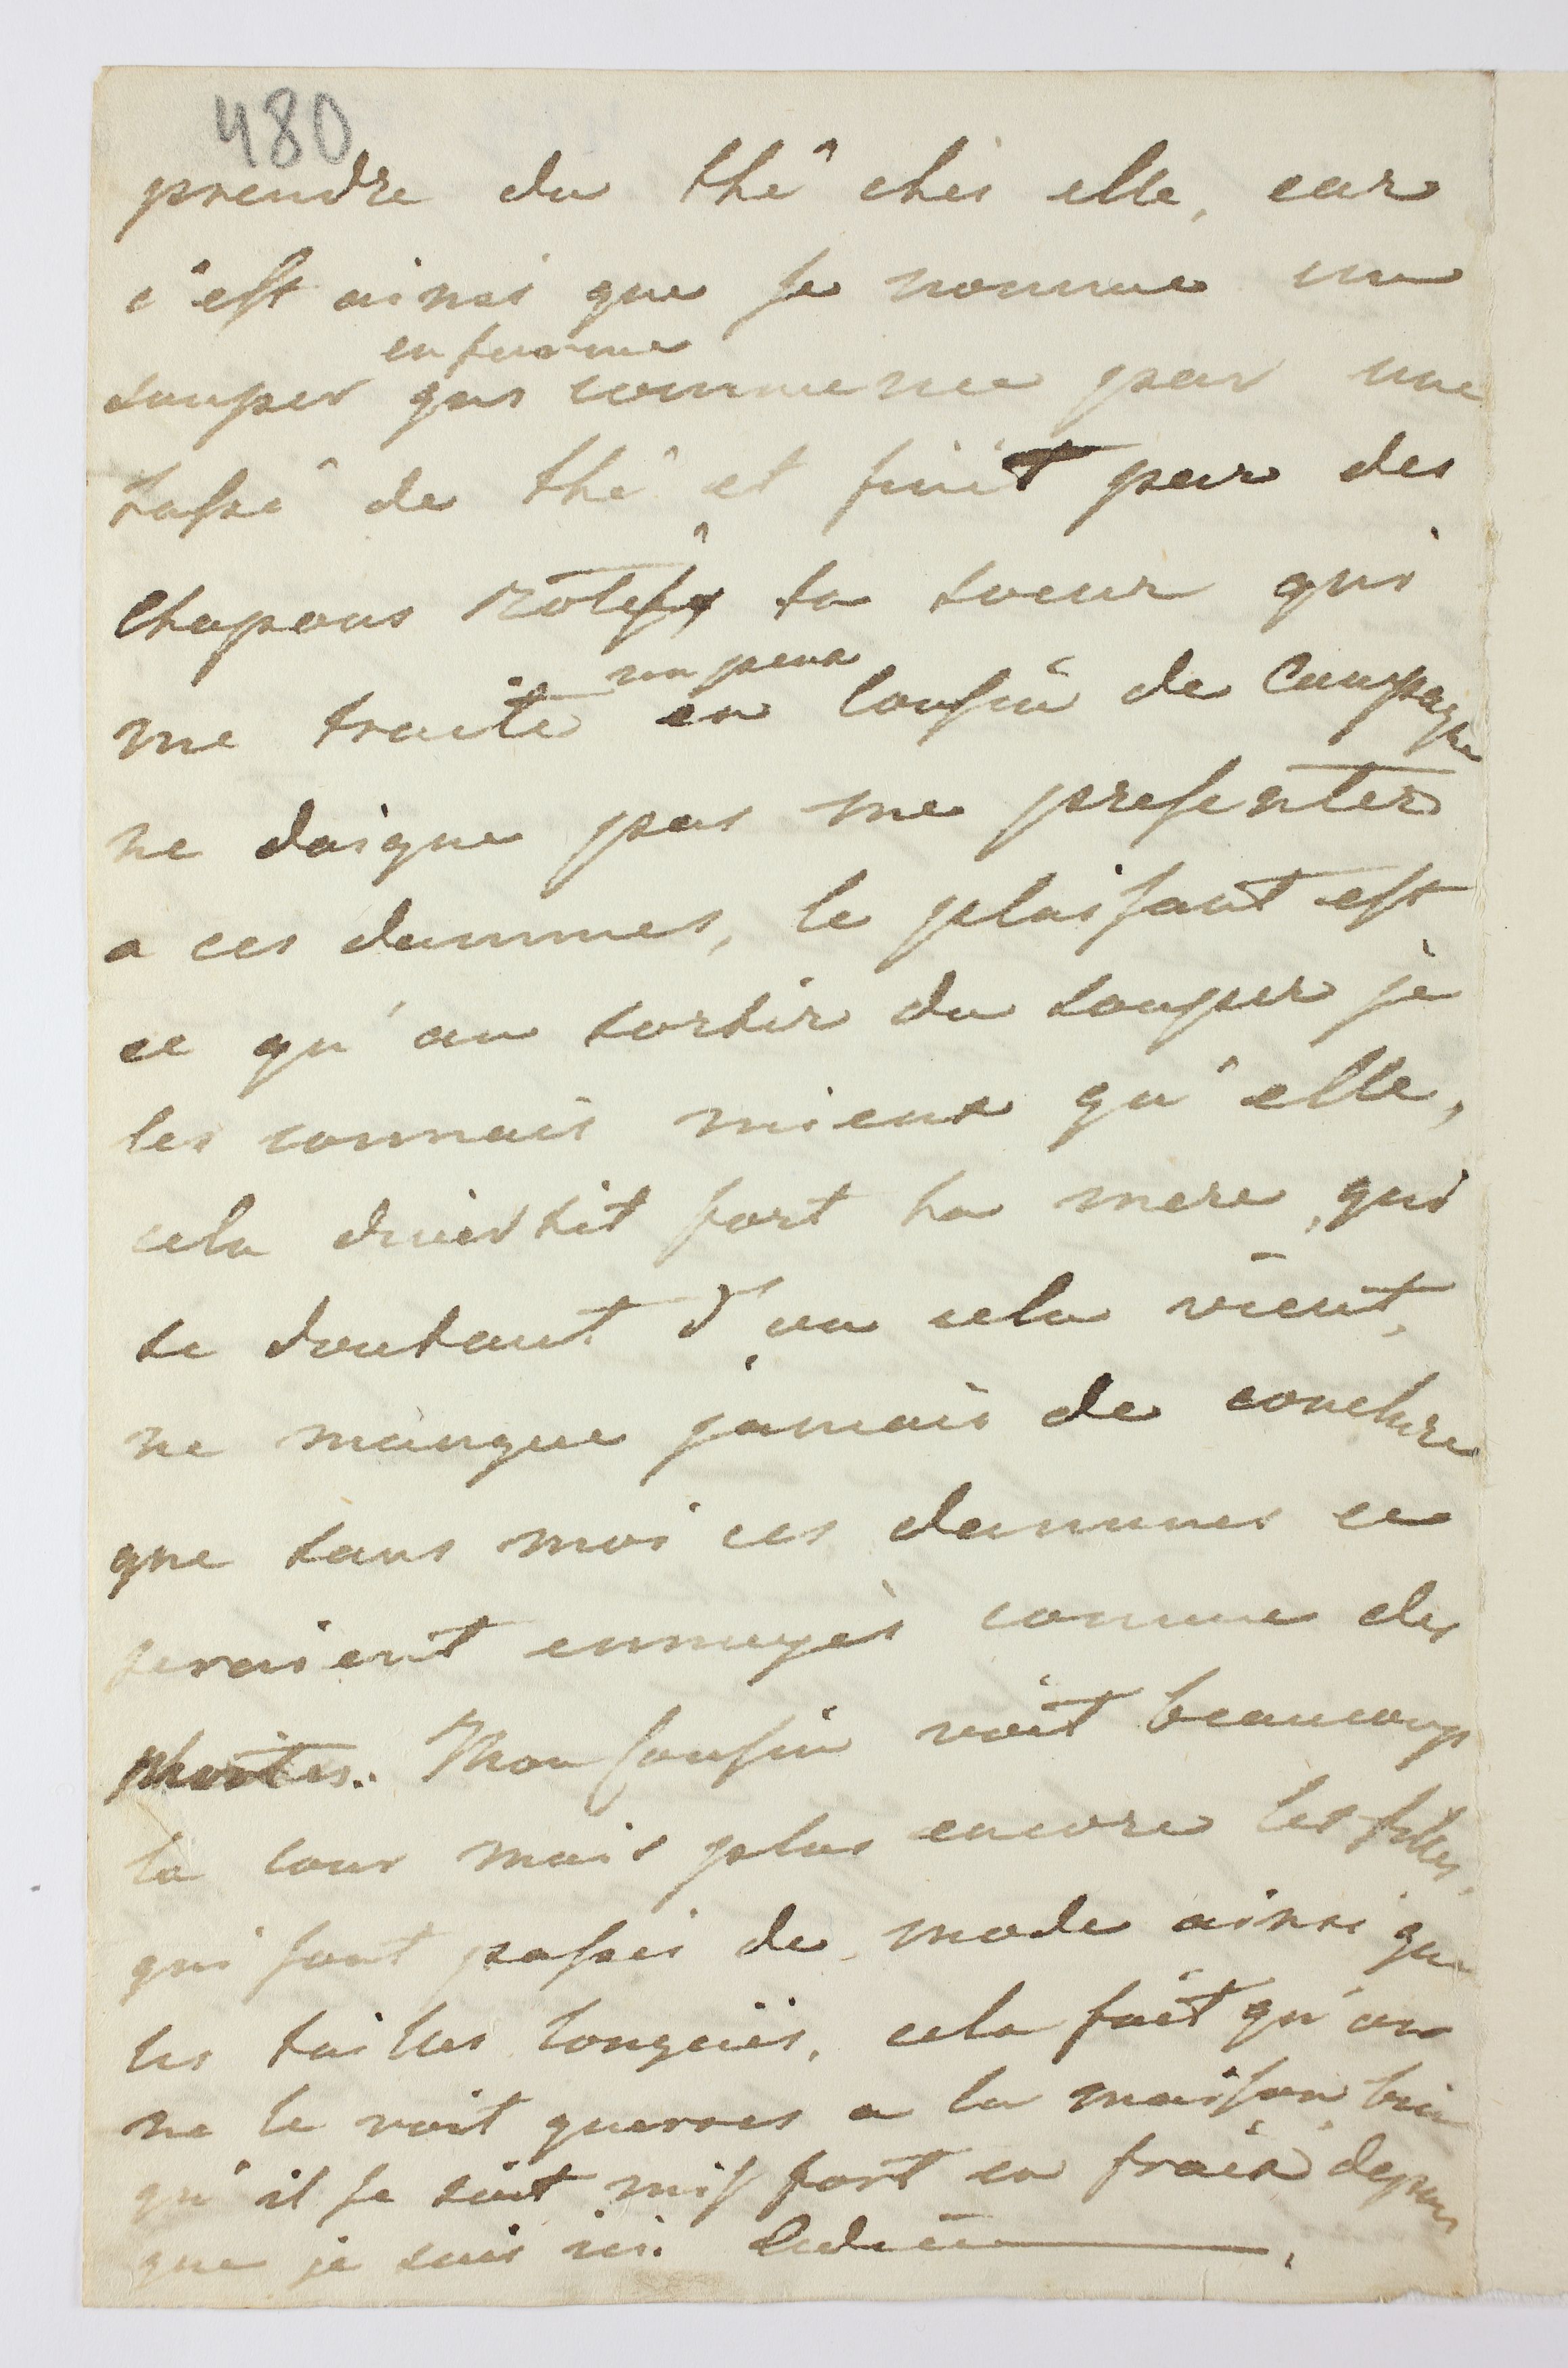 480
prendre du thé chés elle, car
c'est ainsi que se nomme un
en forme
souper qui commence par une
tasse de thé et finit par des
chapons rotis, ta soeur qui
un peu
me traite en Cousin de Campagne
ne daigne pas me presenter
a ces dammes, le plaisant est
ce qu'au sortir du souper je
les connais mieux qu'elle,
cela divertit fort ta mere, qui
se doutant d'ou cela vient,
ne manque jamais de conclure
que sans moi ces dammes ce
seraient ennuyés comme des
mortes. Mon Cousin voit beaucoup
la cour mais plus encore les filles,
qui sont passés de mode ainsi que
les tailles longües, cela fait qu'on
ne le voit guerres a la maison bien
qu'il se soit mis fort en frais depuis
que je suis ici. Adieu